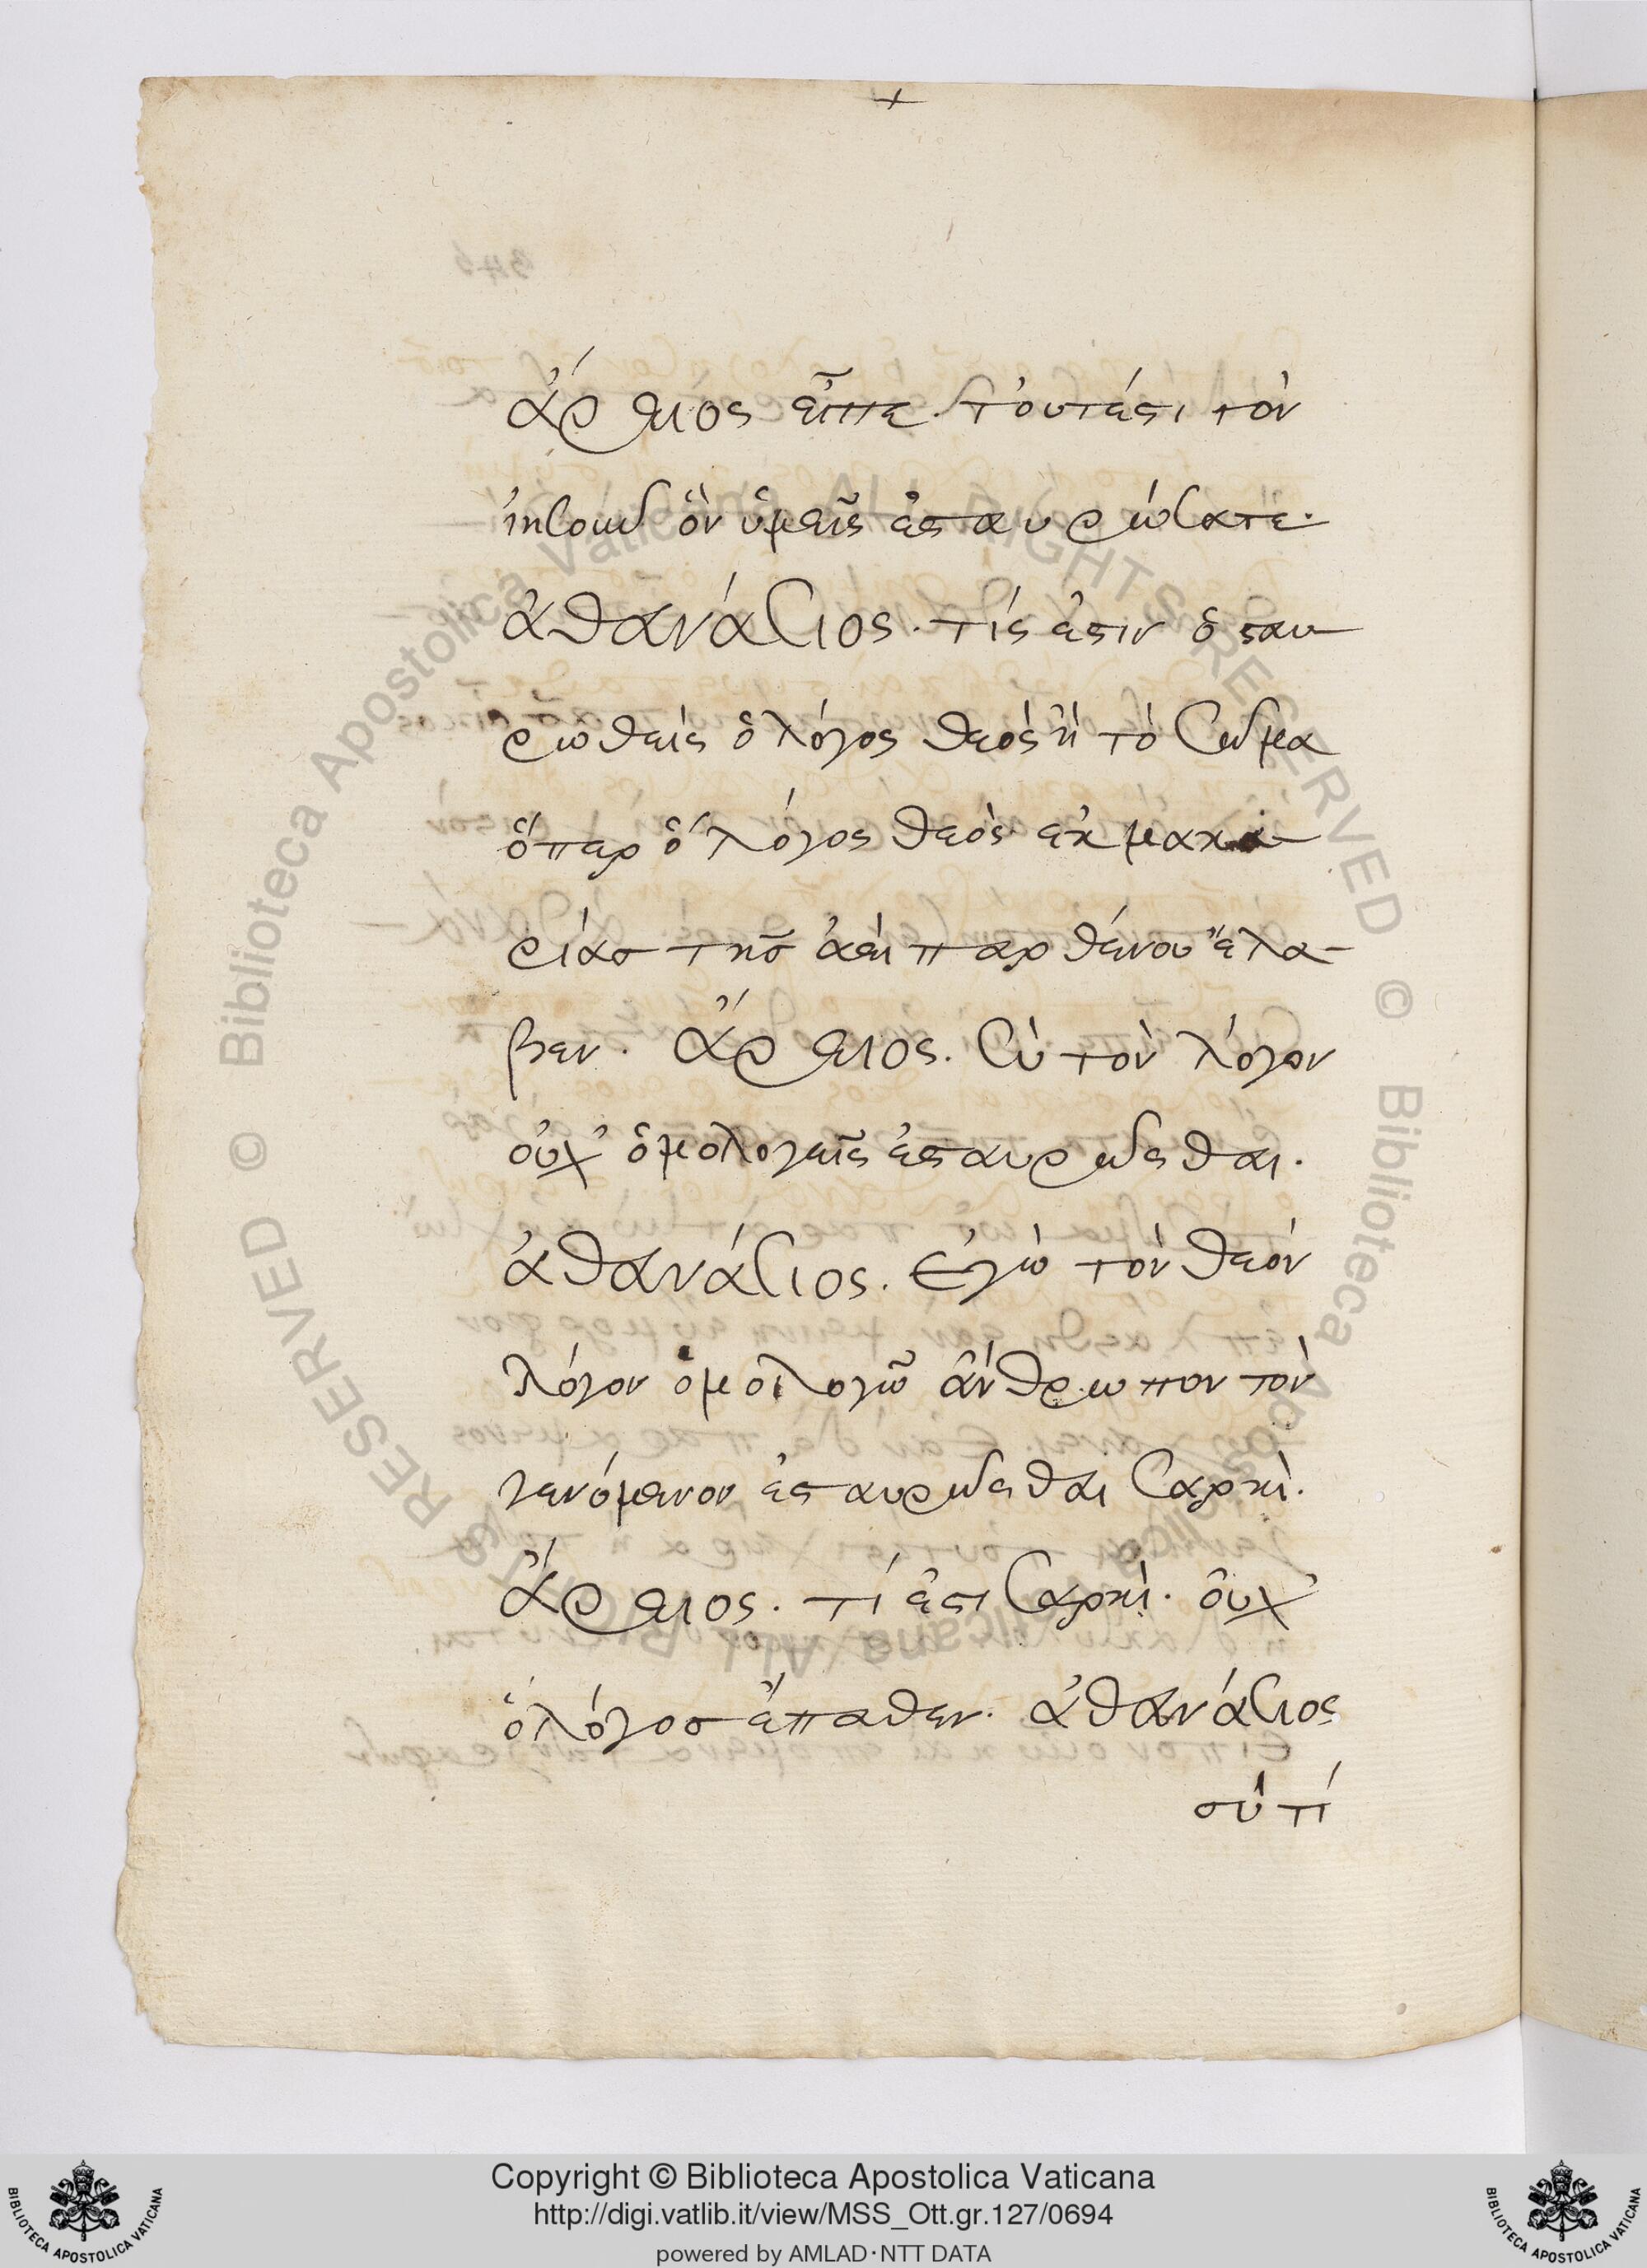 +
ἄρειος εἶπε τουτέστι τὸν
ἰησοῦν ὃν ὑμεῖς ἐσταυρώσατε·
ἀθανάσιος· τίς ἐστιν ὁ σταυ-
ρωθεὶς ὁ λόγος θεὸς ἢ τὸ σῶμα
ὅπερ ὁ λόγος θεὸς ἐκ μακα-
ρίας τῆς ἀειπαρθένου ἔλα-
βεν. ἄρειος. σὺ τὸν λόγον
οὐχ ὁμολογεῖς ἐσταυρῶσθαι.
ἀθανάσιος. ἐγὼ τὸν θεὸν
λόγον ὁμολογῶ ἄνθρωπον τὸν
γενόμενον ἐσταυρῶσθαι σαρκὶ.
ἄρειος. τί ἐστι σαρκὶ. οὐχ
ὁ λόγος ἔπαθεν. ἀθανάσιος
σὺ τί
Copyright © Biblioteca Apostolica Vaticana
http://digi.vatlib.it/view/MSS_Ott.gr.127/0694
powered by AMLAD·NTT DATA
BIBLIOTECA APOSTOLICA VATICANA
BIBLIOTECA APOSTOLICA VATICANA
© Biblioteca Apostolica Vaticana ALL RIGHTS RESERVED
© Biblioteca Apostolica Vaticana ALL RIGHTS RESERVED